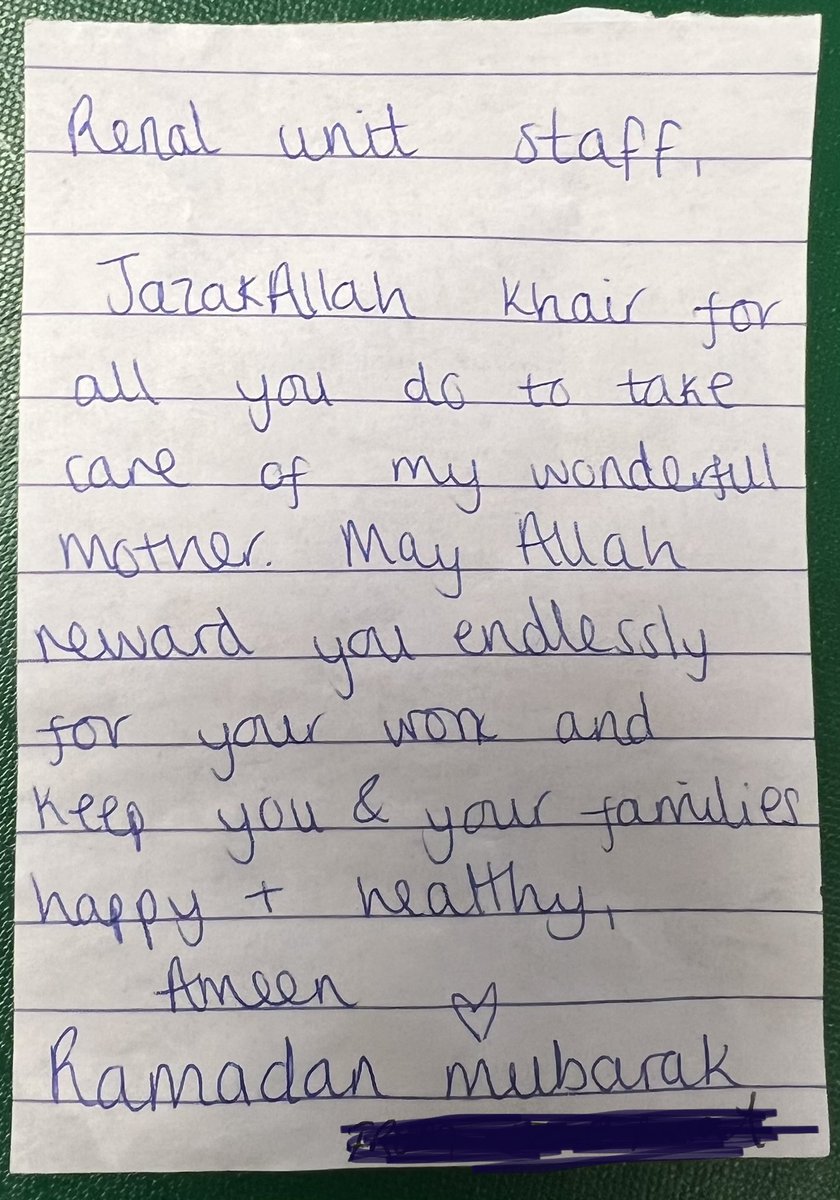 Renal unit staff,
JazakAllah Khair for
all you do to take
care of my wonderful
mother. May Allah
reward you endlessly
for your work and
keep you & your families
happy + healthy,
Ameen ♡
Ramadan mubarak